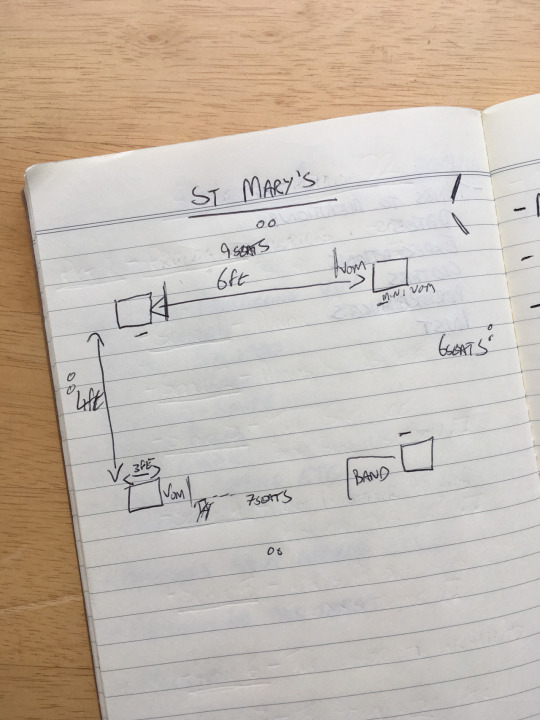 ST MARY'S
9 SEATS
6ft
VOM
MINI VOM
6 SEATS
4ft
3ft
VOM
7 SEATS
BAND